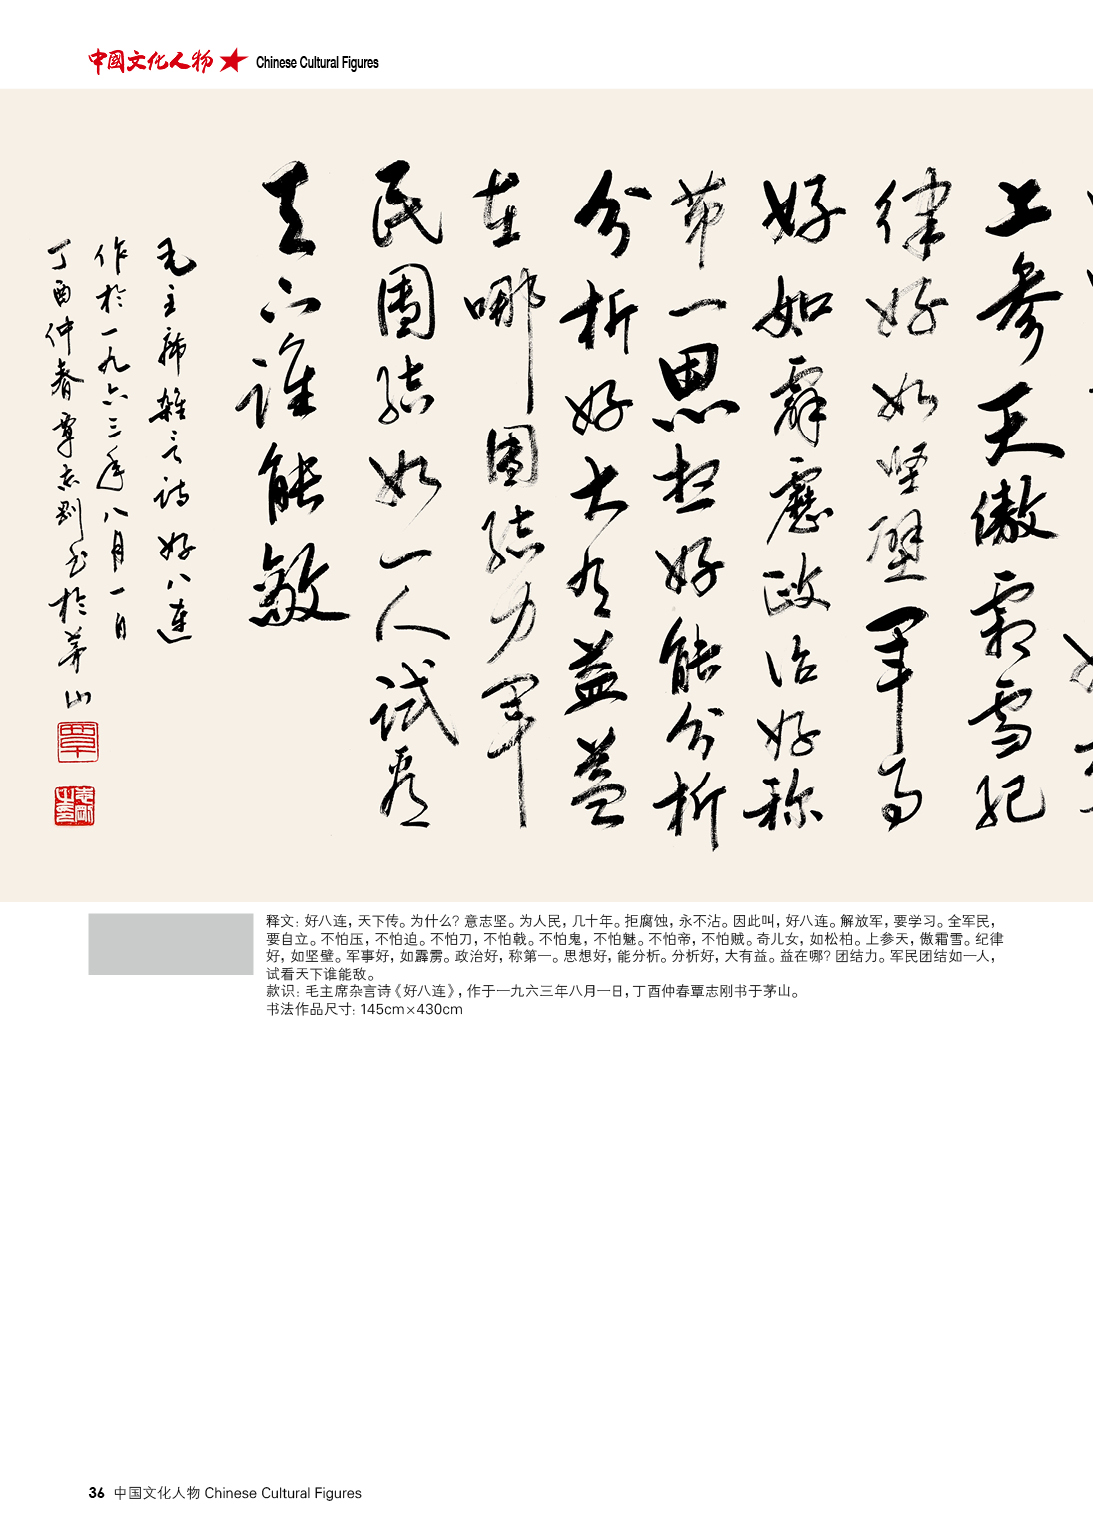 中國文化人物 ★ Chinese Cultural Figures
上参天傲霜雪纪
律好如坚壁军事
好如霹靂政治好称
第一思想好能分析
分析好大有益益
在哪團结力军
民團结如一人试看
天下谁能敵
毛主席雜言诗好八连
作於一九六三年八月一日
丁酉仲春覃志刚书於茅山
覃
释文：好八连，天下传。为什么？意志坚。为人民，几十年。拒腐蚀，永不沾。因此叫，好八连。解放军，要学习。全军民，
要自立。不怕压，不怕迫。不怕刀，不怕戟。不怕鬼，不怕魅。不怕帝，不怕贼。奇儿女，如松柏。上参天，傲霜雪。纪律
好，如坚壁。军事好，如霹雳。政治好，称第一。思想好，能分析。分析好，大有益。益在哪？团结力。军民团结如一人，
试看天下谁能敌。
款识：毛主席杂言诗《好八连》，作于一九六三年八月一日，丁酉仲春覃志刚书于茅山。
书法作品尺寸：145cm×430cm
36 中国文化人物 Chinese Cultural Figures